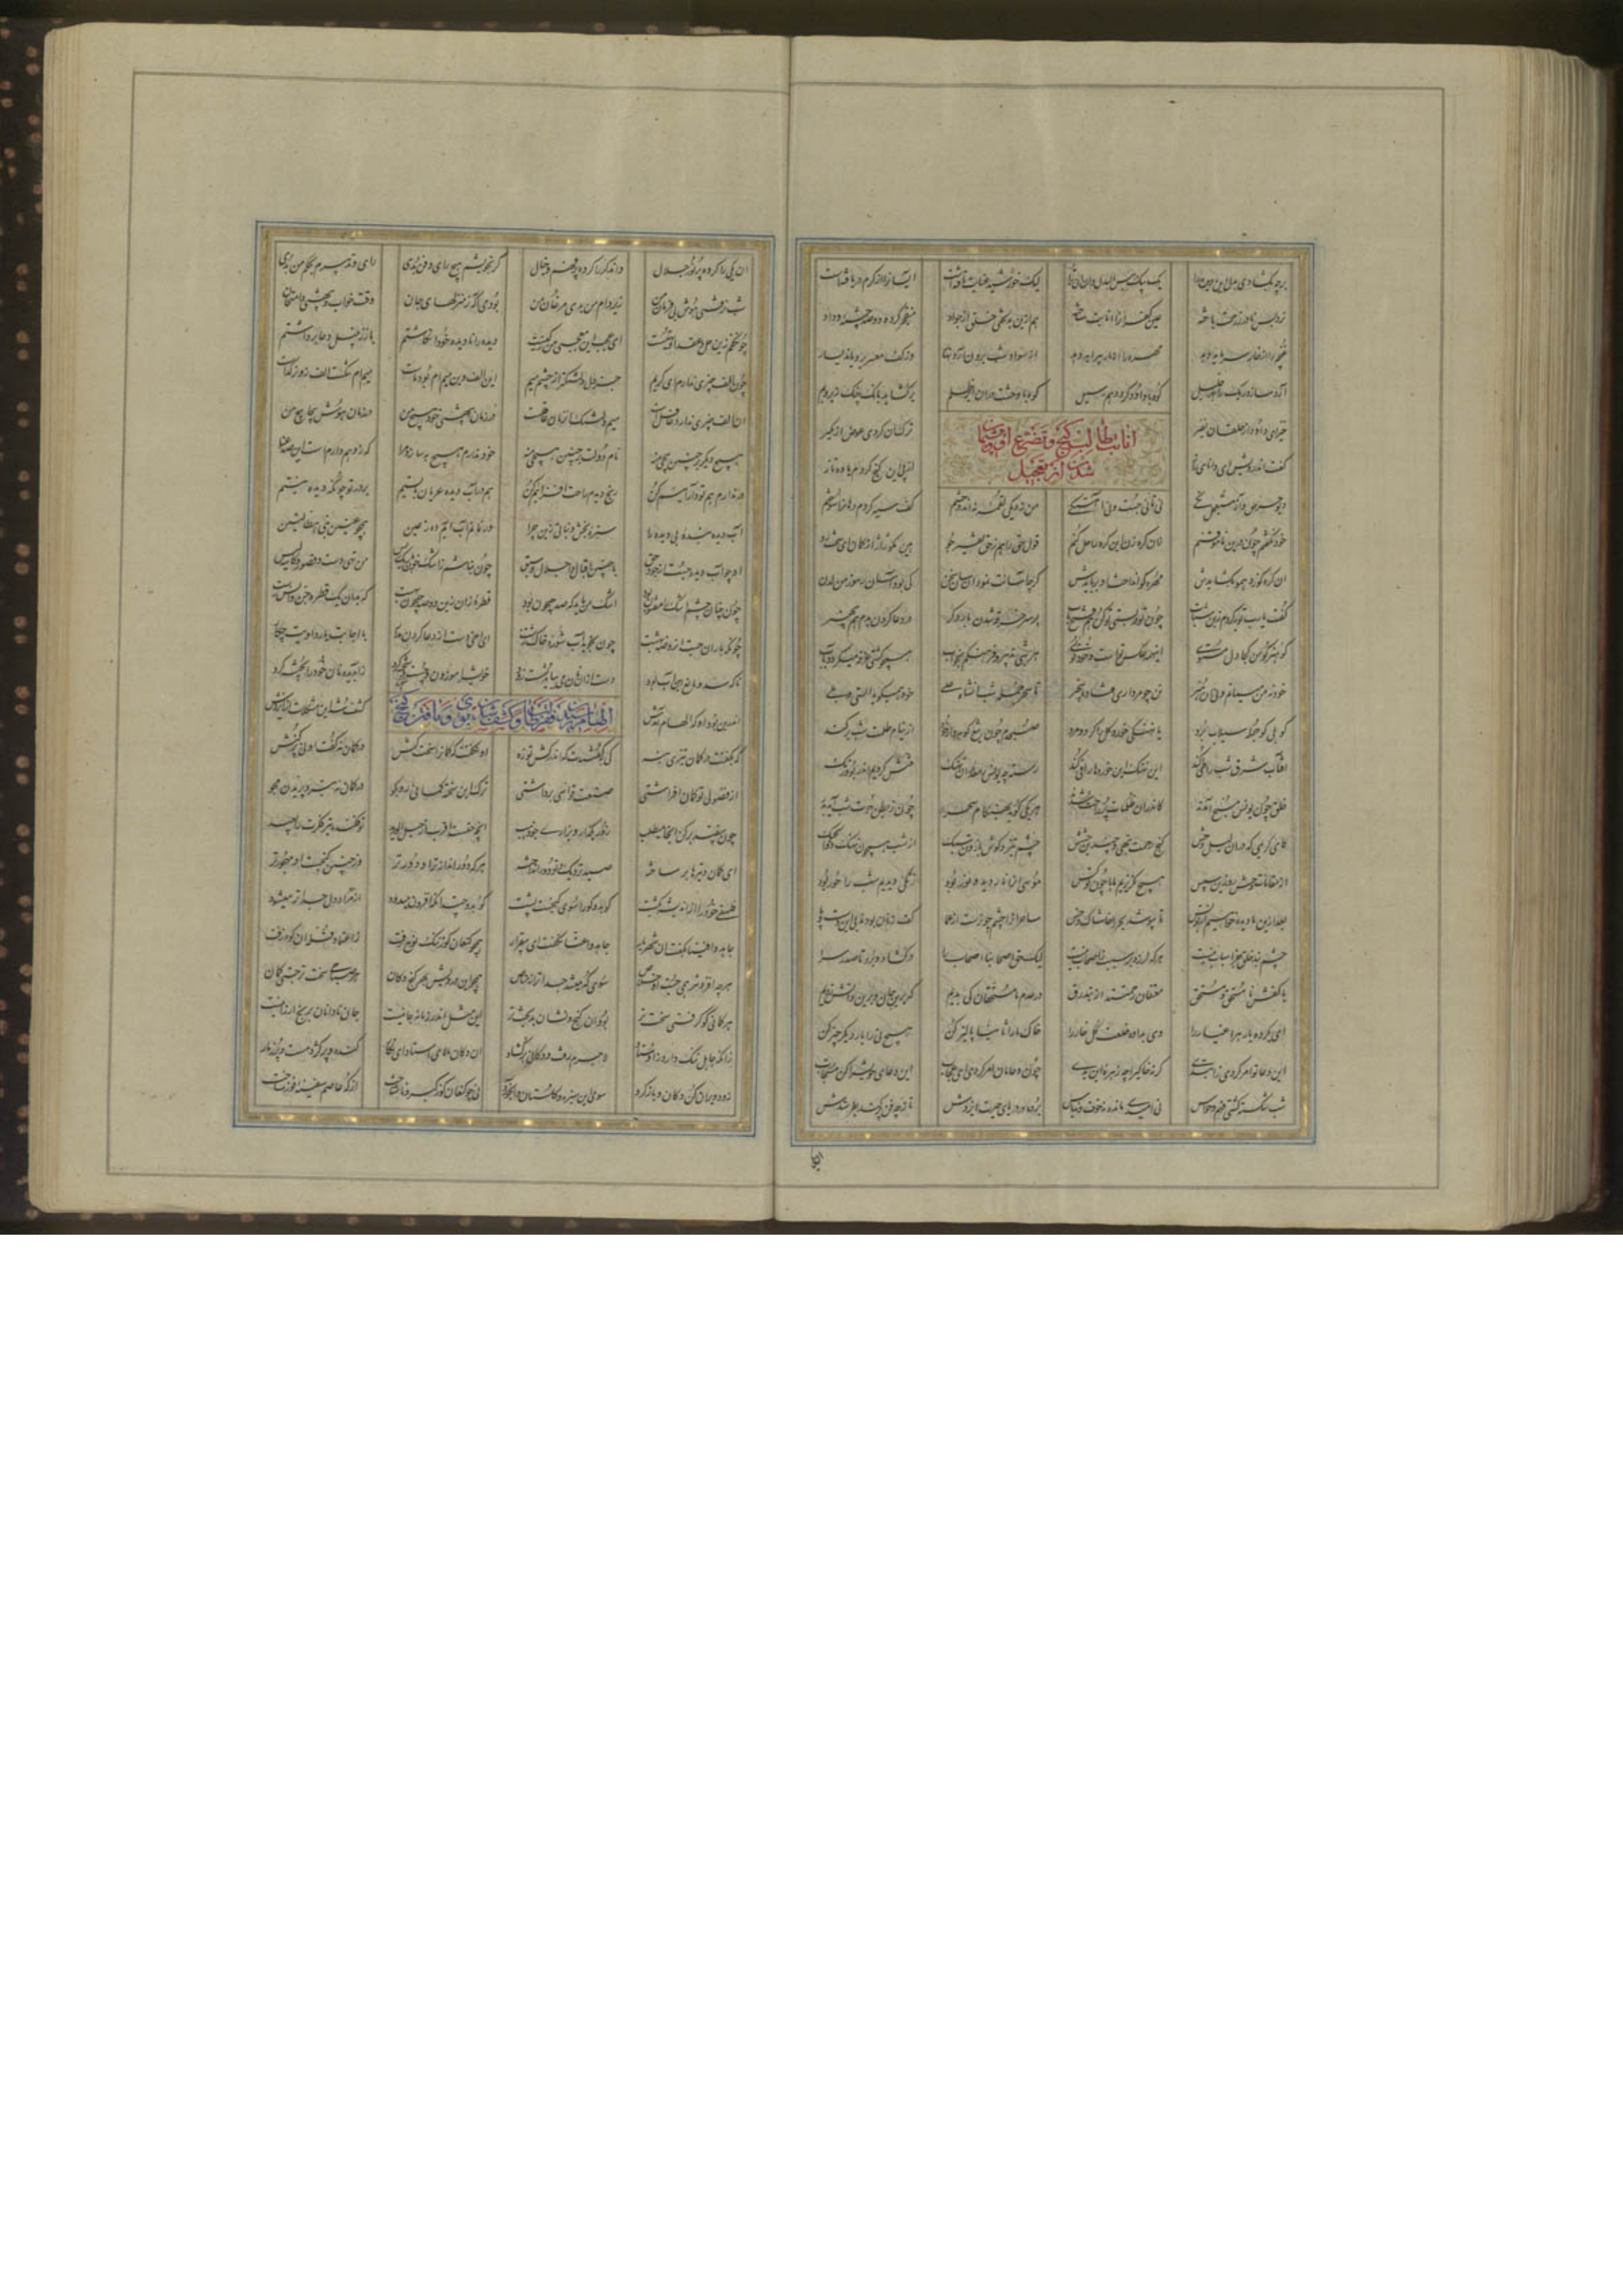 لیک خورشید عنایت تافتست آیسانرا از کرم دریافتست
نرد بس نادر ز رحمت باخته عین کفرانرا انابت ساخته هم ازین بدبختی خلق آن جواد منفجر کرده دو صد چشمه وداد
غنچه را از خار سرمایه دهد مهره را از مار پیرایه دهد از سواد شب برون آرد نهار وز کف معسر برویاند یسار
آرد سازد ریگ را بهر خلیل کوه با داود گردد هم رسیل کوه با وحشت در آن ابر ظلم برگشاید بانگ چنگ و زیر و بم
خیز ای داود از خلقان نفیر ترک آن کردی عوض از ما بگیر
انابت طالب گنج و تضرع او
شدن از تعجیل
گفت آن درویش ای دانای راز از پی این گنج کردم یاوه تاز
دیو حرص و آز و مستعجل تگی نی تانی جست و نی آهستگی من ز دیگی لقمه نندوختم کف سیه کردم دهانرا سوختم
خود نگفتم چون درین ناموقنم زان گره زن این گره را حل کنم قول حق را هم ز حق تفسیر جو هین مگو ژاژ از گمان ای سخت رو
آن گره کو زد همو بگشایدش مهره کو انداخت او بربایدش گرچه آسانت نمود آن سان سخن کی بود آسان رموز من لدن
گفت یا رب توبه کردم زین شتاب چون تو در بستی تو کن هم فتح باب بر سر خرقه شدن بار دگر در دعا کردن بدم هم بی هنر
کو هنر کو من کجا دل مستوی این همه عکس توست و خود توی هر شبی تدبیر و فرهنگم بخواب همچو کشتی غرقه میگردد ز آب
خود نه من میمانم و نی آن هنر تن چو مرداری فتاده بیخبر تا سحر جمله شب آن شاه علی خود همی گوید الستی و بلی
کو بلی گو جمله سیلاب برد یا نهنگی خورد کل را کرد و مرد صبحدم چون تیغ گوهردار خود از نیام ظلمت شب بر کند
آفتاب شرق شب را طی کند این نهنگ آن خوردها را قی کند رسته چون یونس ز معده آن نهنگ منتشر گردیم اندر بو و رنگ
خلق چون یونس مسبح آمدند کاندران ظلمات پر راحت شدند هر یکی گوید بهنگام سحر چون ز بطن حوت شب آید بدر
کای کریمی که در آن لیل وحش گنج رحمت بنهی و چندین چشش چشم تیز و گوش تازه تن سبک از شب همچون نهنگ ذوالحبک
از مقامات وحش رو زین سپس هیچ نگریزیم ما با چون تو کس موسی آنرا نار دید و نور بود زنگی دیدیم شب را حور بود
بعد ازین ما دیده خواهیم از تو بس تا نپوشد بحر را خاشاک و خس ساحرانرا چشم چون رست از عما کف زنان بودند بی این دست و پا
چشم بند خلق جز اسباب نیست هر که لرزد بر سبب ز اصحاب نیست لیک حق اصحابنا اصحاب را در گشاد و برد تا صدر سرا
با کفش نامستحق و مستحق معتقان رحمتند از بند رق در عدم ما مستحقان کی بدیم که برین جان و برین دانش زدیم
ای بکرده یار هر اغیار را وی بداده خلعت گل خار را خاک ما را ثانیا پالیز کن هیچ نی را بار دیگر چیز کن
این دعا تو امر کردی ز ابتدی گرنه خاکی را چه زهره این بدی چون دعامان امر کردی ای عجاب این دعای خویش را کن مستجاب
شب شکسته کشتی فهم و حواس نی امیدی مانده نه خوف و نه یاس برده در دریای حیرت ایزدش تا ز چه فن پر کند بفرستدش
آن یکی را کرده پر نور جلال وان دگر را کرده پر وهم و خیال گر بخویشم هیچ رای و فن بدی رای و تدبیرم بحکم من بدی
شب نرفتی هوش بی فرمان من زیر دام من بدی مرغان من بودمی آگه ز منزلهای جان وقت خواب و بیهشی و امتحان
چون کفم زین حل و عقد او تهیست ای عجب این معجبی من ز کیست دیده را نادیده خود انگاشتم باز زنبیل دعا برداشتم
چون الف چیزی ندارم ای کریم جز دلی دلتنگتر از چشم میم این الف وین میم ام بود ماست میم ام تنگست الف زو نر گداست
آن الف چیزی ندارد غافلیست میم دلتنگ آن زمان عاقلیست در زمان بیهشی خود هیچ من در زمان هوش پیچاپیچ من
هیچ دیگر بر چنین هیچی منه نام دولت بر چنین پیچی منه خود ندارم هیچ به سازد مرا که ز وهم دارم است این صد عنا
ور ندارم هم تو داراییم کن رنج دیدم راحت افزاییم کن هم در آب دیده عریان بیستم بر در تو چونکه دیده نیستم
آب دیده بنده بی دیده را سبزه بخش و نباتی زین چرا ور نمانم آب آبم ده ز عین همچو عینین نبی هطالتین
او چو آب دیده جست از جود حق با چنین اقبال و اجلال و سبق چون نباشم ز اشک خون باریک ریس من تهی دست و قصور و کاسه لیس
چون چنان چشم اشک را مفتون بود اشک من باید که صد جیحون بود قطره زان زین دو صد جیحون بهست که بدان یک قطره جن و انس رست
چونکه باران جست آن روضه بهشت چون نجوید آب شوره خاک زشت ای اخی دست از دعا کردن مدار با اجابت یا رد اویت چه کار
نان که سد و مانع این آب بود دست از آن نان می بباید شست زود خویش را موزون و چست و ز آب دیده نان خود را پخته
اندرین بود او که الهام آمدش کشف شد این مشکلات از ایزدش
کو بگفتت در کمان تیری بنه کی بگفتندت که اندر کش تو زه او نگفتت که کمان را سخت کش در کمان نه گفت او نی پر کنش
از فضولی تو کمان افراشتی صنعت قواسی برداشتی ترک این سخته کمانی رو بگو در کمان نه تیر و پریدن مجو
چون بیفتد بر کن آنجا میطلب زور بگذار و بزاری جو ذهب آنچه حقست اقرب از حبل الورید تو فکنده تیر فکرت را بعید
ای کمان و تیرها بر ساخته صید نزدیک و تو دور انداخته هر که دور اندازتر او دورتر وز چنین گنجست او مهجورتر
فلسفی خود را از اندیشه بکشت گو بدو کو را سوی گنجست پشت گو بدو چندانکه افزون میدود از مراد دل جداتر میشود
جاهدوا فینا بگفت آن شهریار جاهدوا عنا نگفت ای بیقرار همچو کنعان کو ز ننگ نوح رفت ز اعتماد قله آن کوه زفت
هرچه افزونتر همی جست او خلاص سوی که میشد جداتر از مناص همچو این درویش بهر گنج و کان هر صباحی سخت تر جستی کمان
هر کمانی کو گرفتی سخت تر بود از آن گنج و نشان بدبخت تر این مثل اندر زمانه جانیست جان نادانان برنج ارزانیست
زانکه جاهل ننگ دارد ز اوستاد لاجرم رفت و دکانی برگشاد آن دکان بالای استاد ای نگار گنده و پر کژدمست و پر ز مار
زود ویران کن دکان و باز گرد سوی این سبزه و گلستان و آبخورد نی چو کنعان کو ز کبر و ناشناخت از که عاصم سفینه فوز ساخت